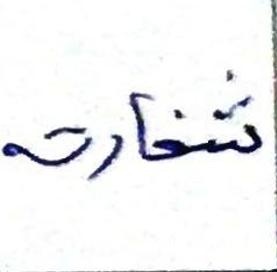 شغارت